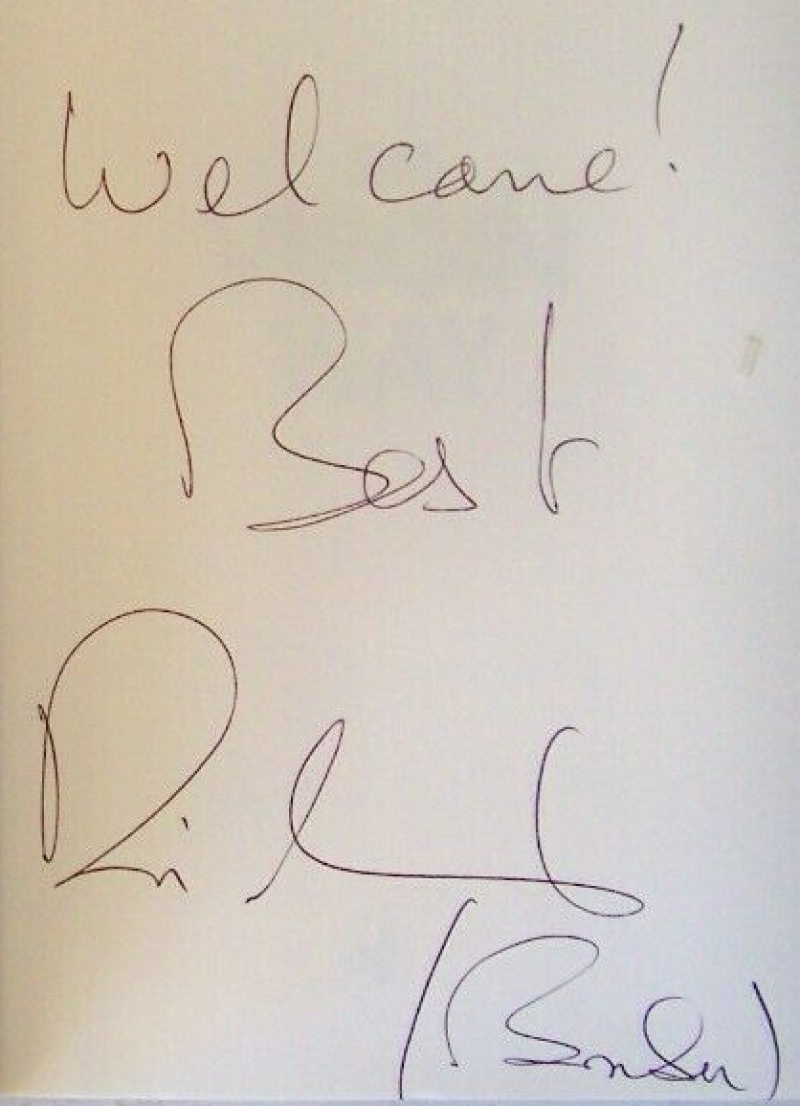 Welcome!
Best
Richard
(Bonser)